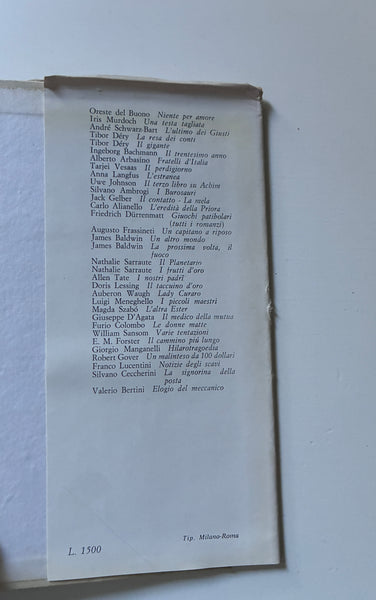 Oreste del Buono Niente per amore
Iris Murdoch Una testa tagliata
André Schwarz-Bart L'ultimo dei Giusti
Tibor Déry La resa dei conti
Tibor Déry Il gigante
Ingeborg Bachmann Il trentesimo anno
Alberto Arbasino Fratelli d'Italia
Tarjei Vesaas Il perdigiorno
Anna Langfus L'estranea
Uwe Johnson Il terzo libro su Achim
Silvano Ambrogi I Burosauri
Jack Gelber Il contatto - La mela
Carlo Alianello L'eredità della Priora
Friedrich Dürrenmatt Giuochi patibolari
(tutti i romanzi)
Augusto Frassineti Un capitano a riposo
James Baldwin Un altro mondo
James Baldwin La prossima volta, il
fuoco
Nathalie Sarraute Il Planetario
Nathalie Sarraute I frutti d'oro
Allen Tate I nostri padri
Doris Lessing Il taccuino d'oro
Auberon Waugh Lady Curaro
Luigi Meneghello I piccoli maestri
Magda Szabó L'altra Ester
Giuseppe D'Agata Il medico della mutua
Furio Colombo Le donne matte
William Sansom Varie tentazioni
E. M. Forster Il cammino più lungo
Giorgio Manganelli Hilarotragoedia
Robert Gover Un malinteso da 100 dollari
Franco Lucentini Notizie degli scavi
Silvano Ceccherini La signorina della
posta
Valerio Bertini Elogio del meccanico
Tip. Milano-Roma
L. 1500